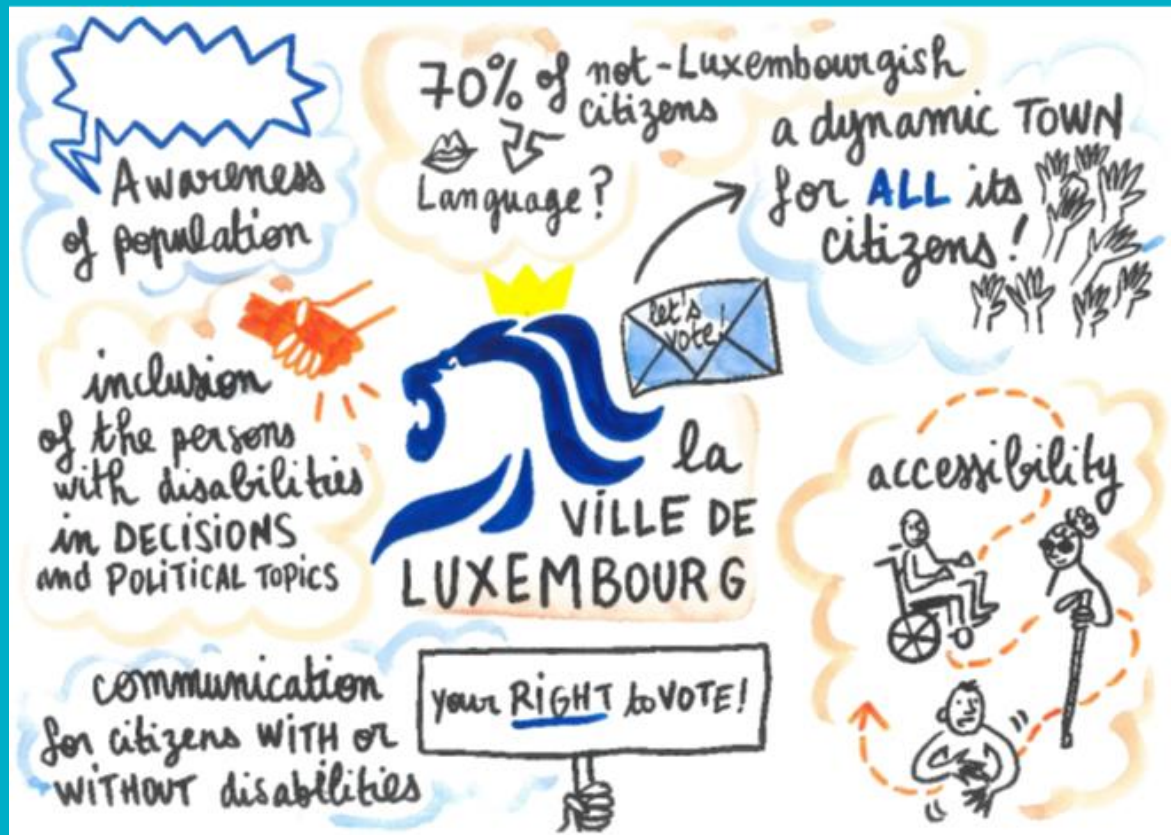 Awareness
of population
70% of not-Luxembourgish
citizens
Language?
a dynamic TOWN
for ALL its
citizens!
let's
vote!
inclusion
of the persons
with disabilities
in DECISIONS
and POLITICAL TOPICS
la
VILLE DE
LUXEMBOURG
accessibility
communication
for citizens WITH or
WITHOUT disabilities
your RIGHT to VOTE!